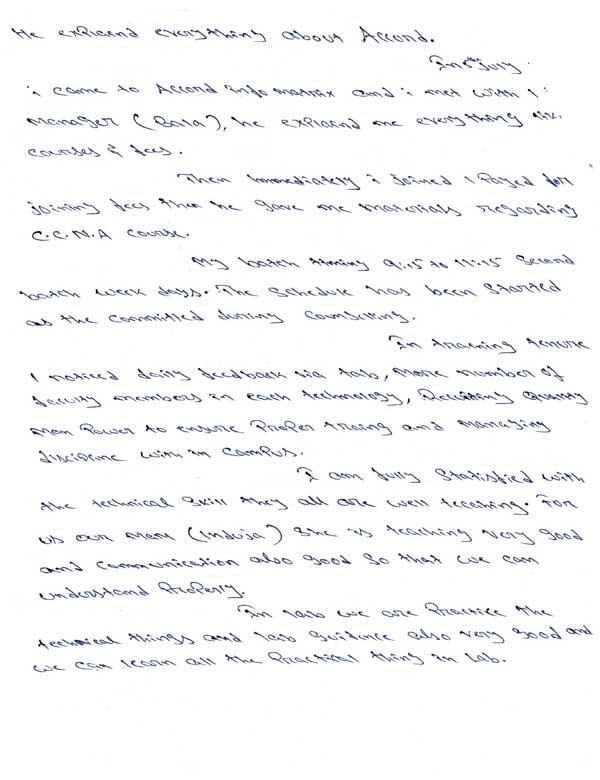 He explaend everything about Accord.
In 5th July.
i came to Accord info matrix and i met with 1:
Manager (Bala), he explaind me everything lik.
courses & fees.
Then Immediately i joined I Payed for
joining fees then he gave me materials regarding
C.C.N.A course.
My batch timing 9:15 to 11:15 Second
batch week days. The Schedule has been Started
as the committed during Counselling.
In traening tenure
I noticed daily feedback via tab, more number of
faculty members in each technology, Recuiting Quality
Man Power to ensure Proper traing and Managing
discipline with in Campus.
I am fully Statisfied with
the technical Skill they all are well tecahing. For
us our Mam (Induja) She is teaching very good
and communication also good So that we can
understand Properly.
In lab we are Practice the
technical things and lab Guidence also very good and
we can learn all the Practical thing in Lab.